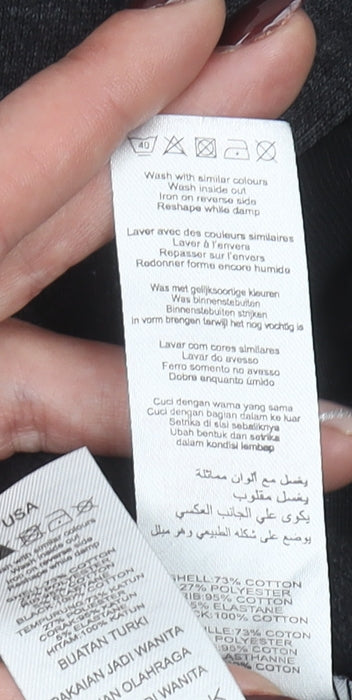 40
Wash with similar colours
Wash inside out
Iron on reverse side
Reshape while damp
Laver avec des couleurs similaires
Laver à l'envers
Repasser sur l'envers
Redonner forme encore humide
Was met gelijksoortige kleuren
Was binnenstebuiten
Binnenstebuiten strijken
in vorm brengen terwijl het nog vochtig is
Lavar com cores similares
Lavar do avesso
Ferro somento no avesso
Dobre enquanto úmido
Cuci dengan warna yang sama
Cuci dengan bagian dalam ke luar
Setrika di sisi sebaliknya
Ubah bentuk dan setrika
dalam kondisi lembap
يغسل مع ألوان مماثلة
يغسل مقلوب
يكوى على الجانب العكسي
يوضع على شكله الطبيعي وهو مبلل
HELL:73% COTTON
27% POLYESTER
RIB:95% COTTON
5% ELASTANE
CK:100% COTTON
LLE:73% COTON
POLYESTER
:95% COTON
ASTHANNE
% COTON
USA
with similar colours
Wash inside out
Iron on reverse side
Reshape while damp
5% ELASTANE
HITAM:100% KATUN
BUATAN TURKI
PAKAIAN JADI WANITA
AN OLAHRAGA
JADI WANITA